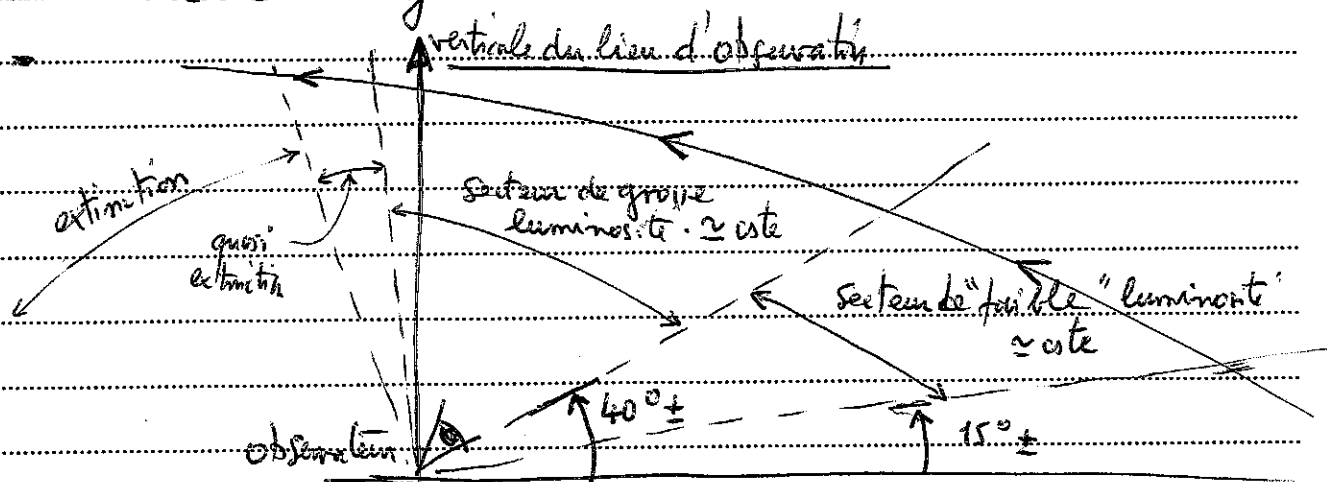 verticale du lieu d'observation
extinction
quasi
extinction
secteur de grosse
luminosité . ≃ cste
secteur de "faible" luminosité
≃ cste
observateur
40° ±
15° ±